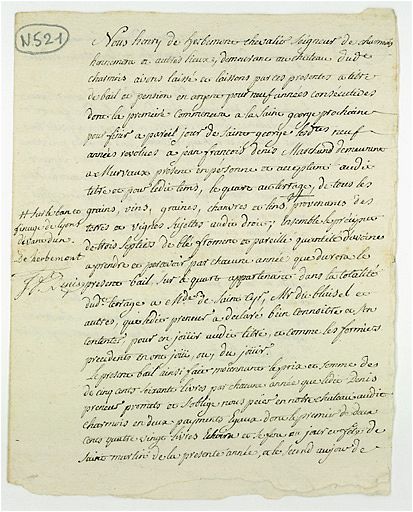 N521
Nous henry de herbemont chevalier seigneur de charmois
et autres lieux, demeurant au chateau dud.
charmois avons laissé et laissons par ces presentes a titre
de bail et pension en argent pour neuf années consecutives
dont la premiere commencera a la saint george prochaine
pour finir a pareil jour de saint george lesdites neuf
années revolues a jean francois denis Marchand demeurant
a Murvaux present en personne et acceptant audit
titre et pour ledit tems, le quart au terrage, de tous les
grains, vins, graines, chanvres et lins provenants des
terres et vignes sujettes audit droit; Ensemble
de trois septiers de blé froment et pareille quantité d'avoines
a prendre et percevoir par chacune année que durera le
present bail, sur le quart appartenant dans la totalité
dud. terrage a Mde. de Saint Cyr, Mr du blaisel et
autres, que ledit preneur a declaré bien connoitre et s'en
contenter, pour en jouir audit titre, et comme les fermiers
precedents en ont joui, ou du jouir.
Le present bail ainsi fait moiennant le prix et somme de
de cinq cents soixante livres par chacune année que ledit Denis
preneur promets et s'oblige nous paier en notre chateau audit
charmois en deux payements Egaux dont le premier de deux
cents quatre vingt livres et se fera au jour et fête de
saint martin de la presente année, et le second au jour de
sur le ban et
finage de
de herbemont
J f Denis